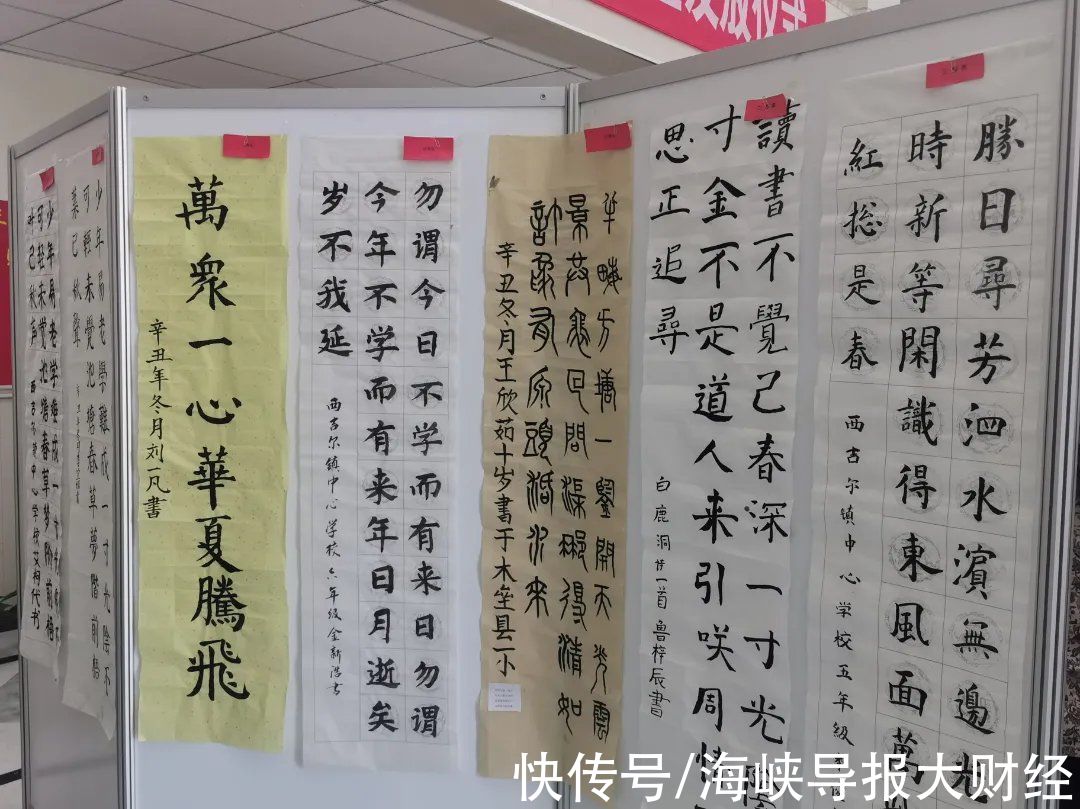 发放仪式
勝日尋芳泗水濱無邊
時新等閑識得東風面萬
紅総是春
西吉尔镇中心学校五年级
讀書不覺已春深一寸光陰
寸金不是道人来引咲周情
思正追尋
白鹿洞廿一首 魯梓辰書
半畝方塘一鑒開天光雲
景共徘徊問渠那得清如
許為有源頭活水來
辛丑冬月王欣茹十岁書于木垒县一小
勿谓今日不学而有来日勿谓
今年不学而有来年日月逝矣
岁不我延
西吉尔镇中心学校六年级金新浩书
萬衆一心華夏騰飛
辛丑年冬月刘一凡書
少年易老學難成一寸光陰不
可輕未覺池塘春草夢階前梧
葉已秋聲
少年易老学难成一寸
可轻未觉池塘春草梦阶前梧
叶已秋声
西吉尔镇中心学校艾柯代书
快传号/海峡导报大财经